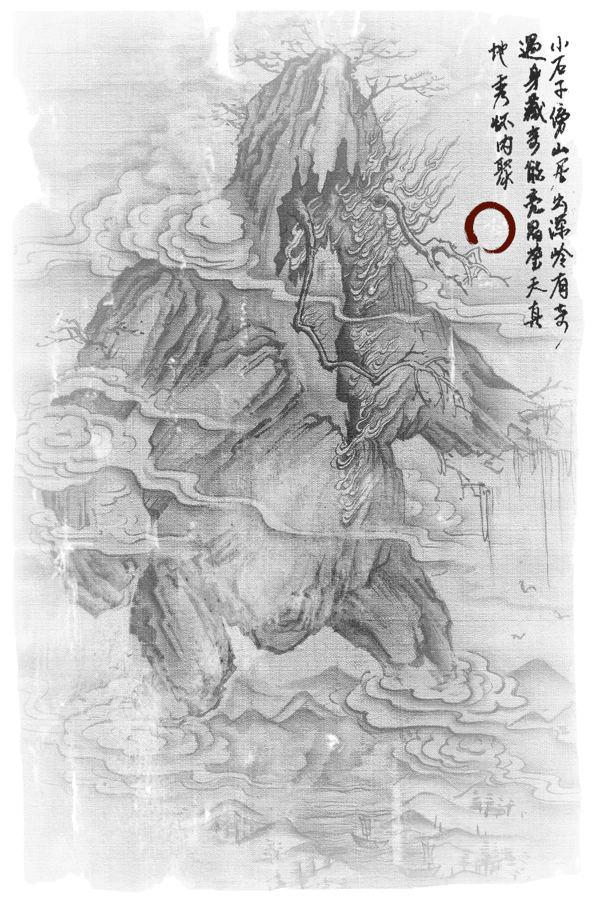 小石子傍山居出深岭有奇
遇身藏奇能亮晶莹天真
地秀怀内聚